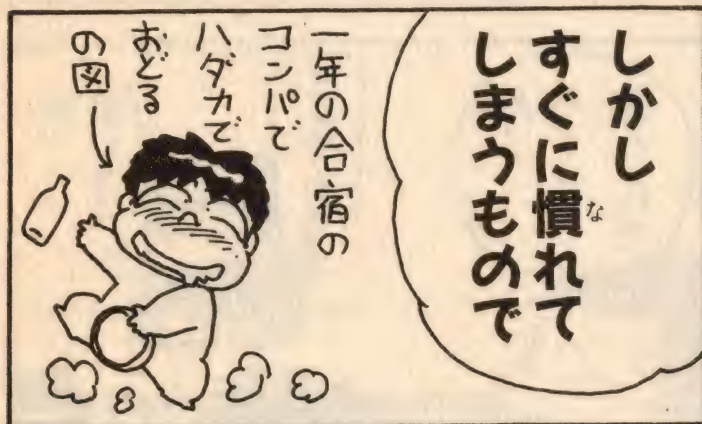 しかし
すぐに慣れて
な
しまうもので
一年の合宿の
コンパで
ハダカで
おどる
の図